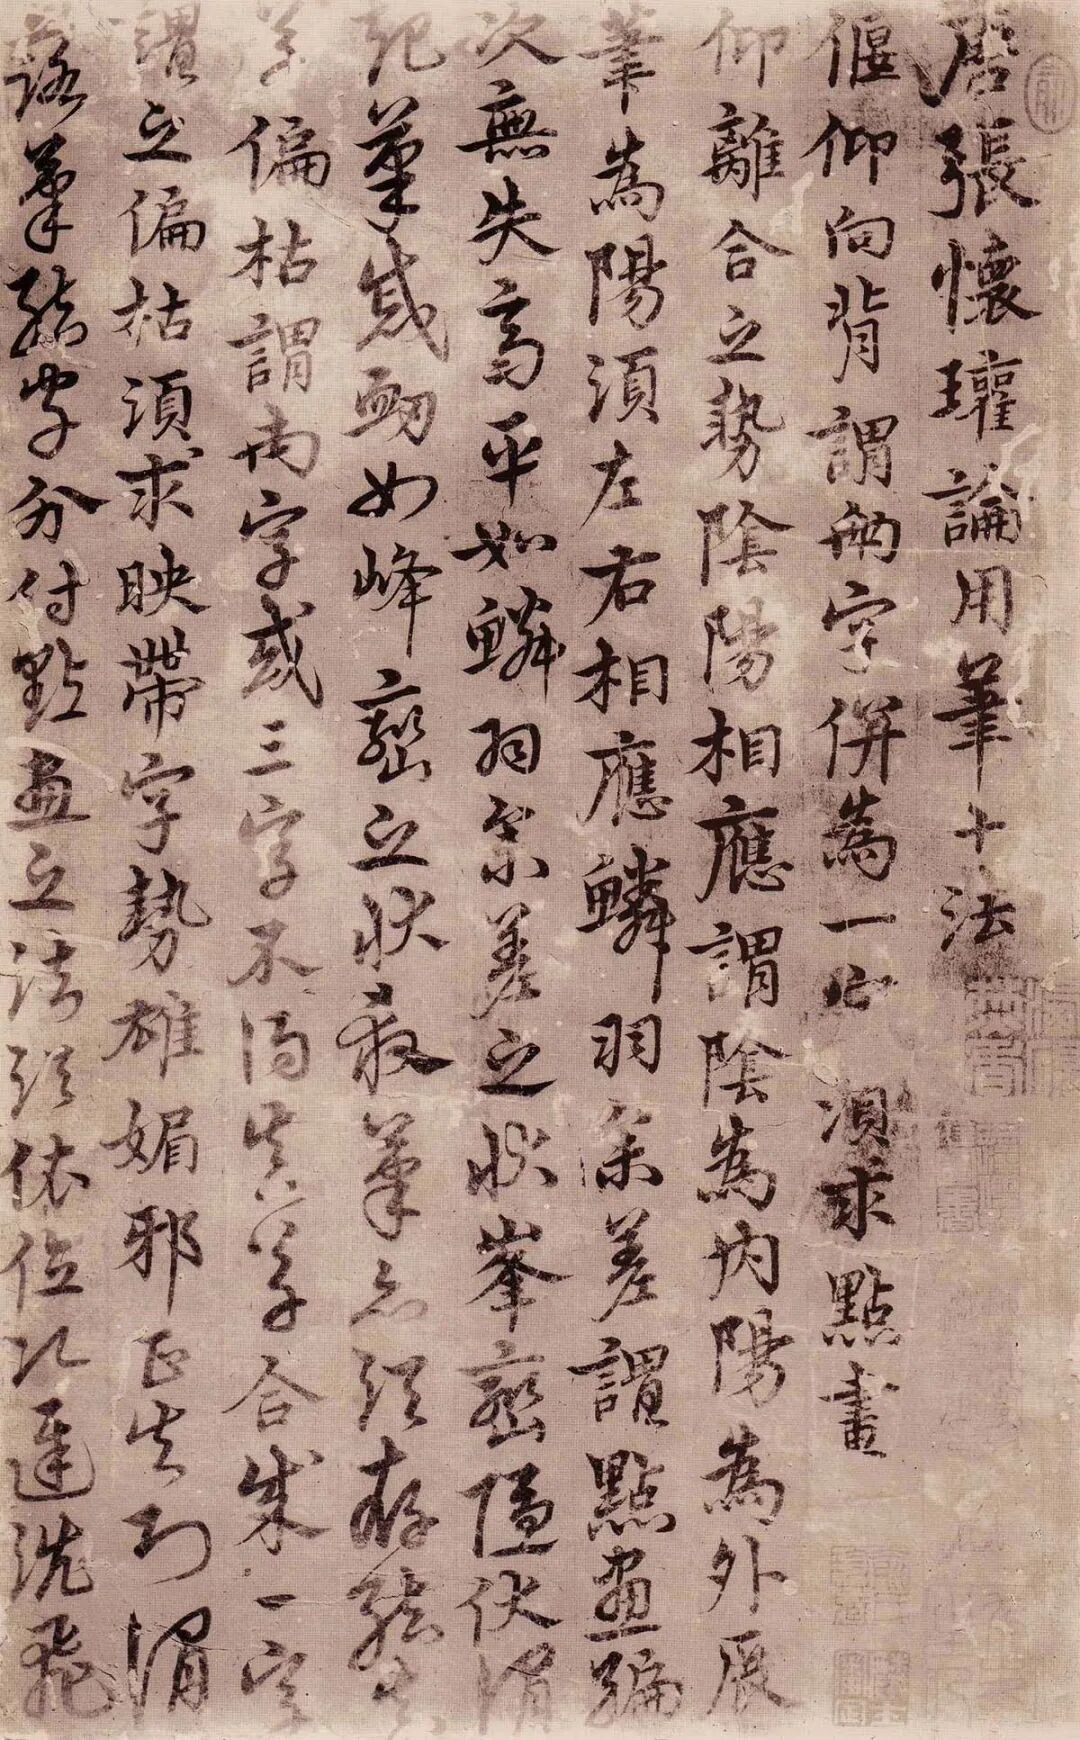 唐張懷瓘論用筆十法
偃仰向背謂兩字併為一字須求點畫
仰離合之勢陰陽相應謂陰為內陽為外展
筆為陽須左右相應鱗羽參差謂點畫編
次無失高平如鱗羽參差之狀峯巒隱伏謂
起筆蹙衄如峰巒之狀殺筆亦須存結
字偏枯謂兩字或三字不得真草合成一字
謂之偏枯須求映帶字勢雄媚邪正失則謂
落筆結字分付點畫之法須依位次遲澁飛